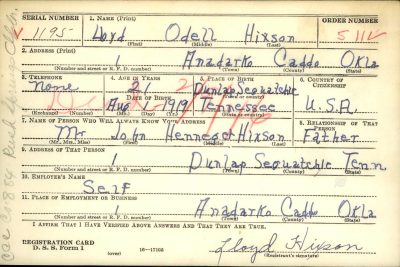 SERIAL NUMBER 1. NAME (Print) ORDER NUMBER
V 1195 Lloyd Odell Hixson 5112
(First) (Middle) (Last)
2. ADDRESS (Print)
1 Anadarko Caddo Okla
(Number and street or R. F. D. number) (Town) (County) (State)
3. TELEPHONE 4. AGE IN YEARS 5. PLACE OF BIRTH 6. COUNTRY OF CITIZENSHIP
None 21 Dunlap Sequatchie
DATE OF BIRTH (Town) (County)
Aug 1 1919 Tennessee U.S.A.
(Exchange) (Number) (Mo.) (Day) (Yr.) (State or country)
7. NAME OF PERSON WHO WILL ALWAYS KNOW YOUR ADDRESS 8. RELATIONSHIP OF THAT PERSON
Mr John Henneger Hixson Father
(Mr., Mrs., Miss) (First) (Middle) (Last)
9. ADDRESS OF THAT PERSON
1 Dunlap Sequatchie Tenn
(Number and street or R. F. D. number) (Town) (County) (State)
10. EMPLOYER'S NAME
Self
11. PLACE OF EMPLOYMENT OR BUSINESS
1 Anadarko Caddo Okla
(Number and street or R. F. D. number) (Town) (County) (State)
I AFFIRM THAT I HAVE VERIFIED ABOVE ANSWERS AND THAT THEY ARE TRUE.
REGISTRATION CARD
D. S. S. Form 1 (over) 16—17105 Lloyd Hixson
(Registrant's signature)